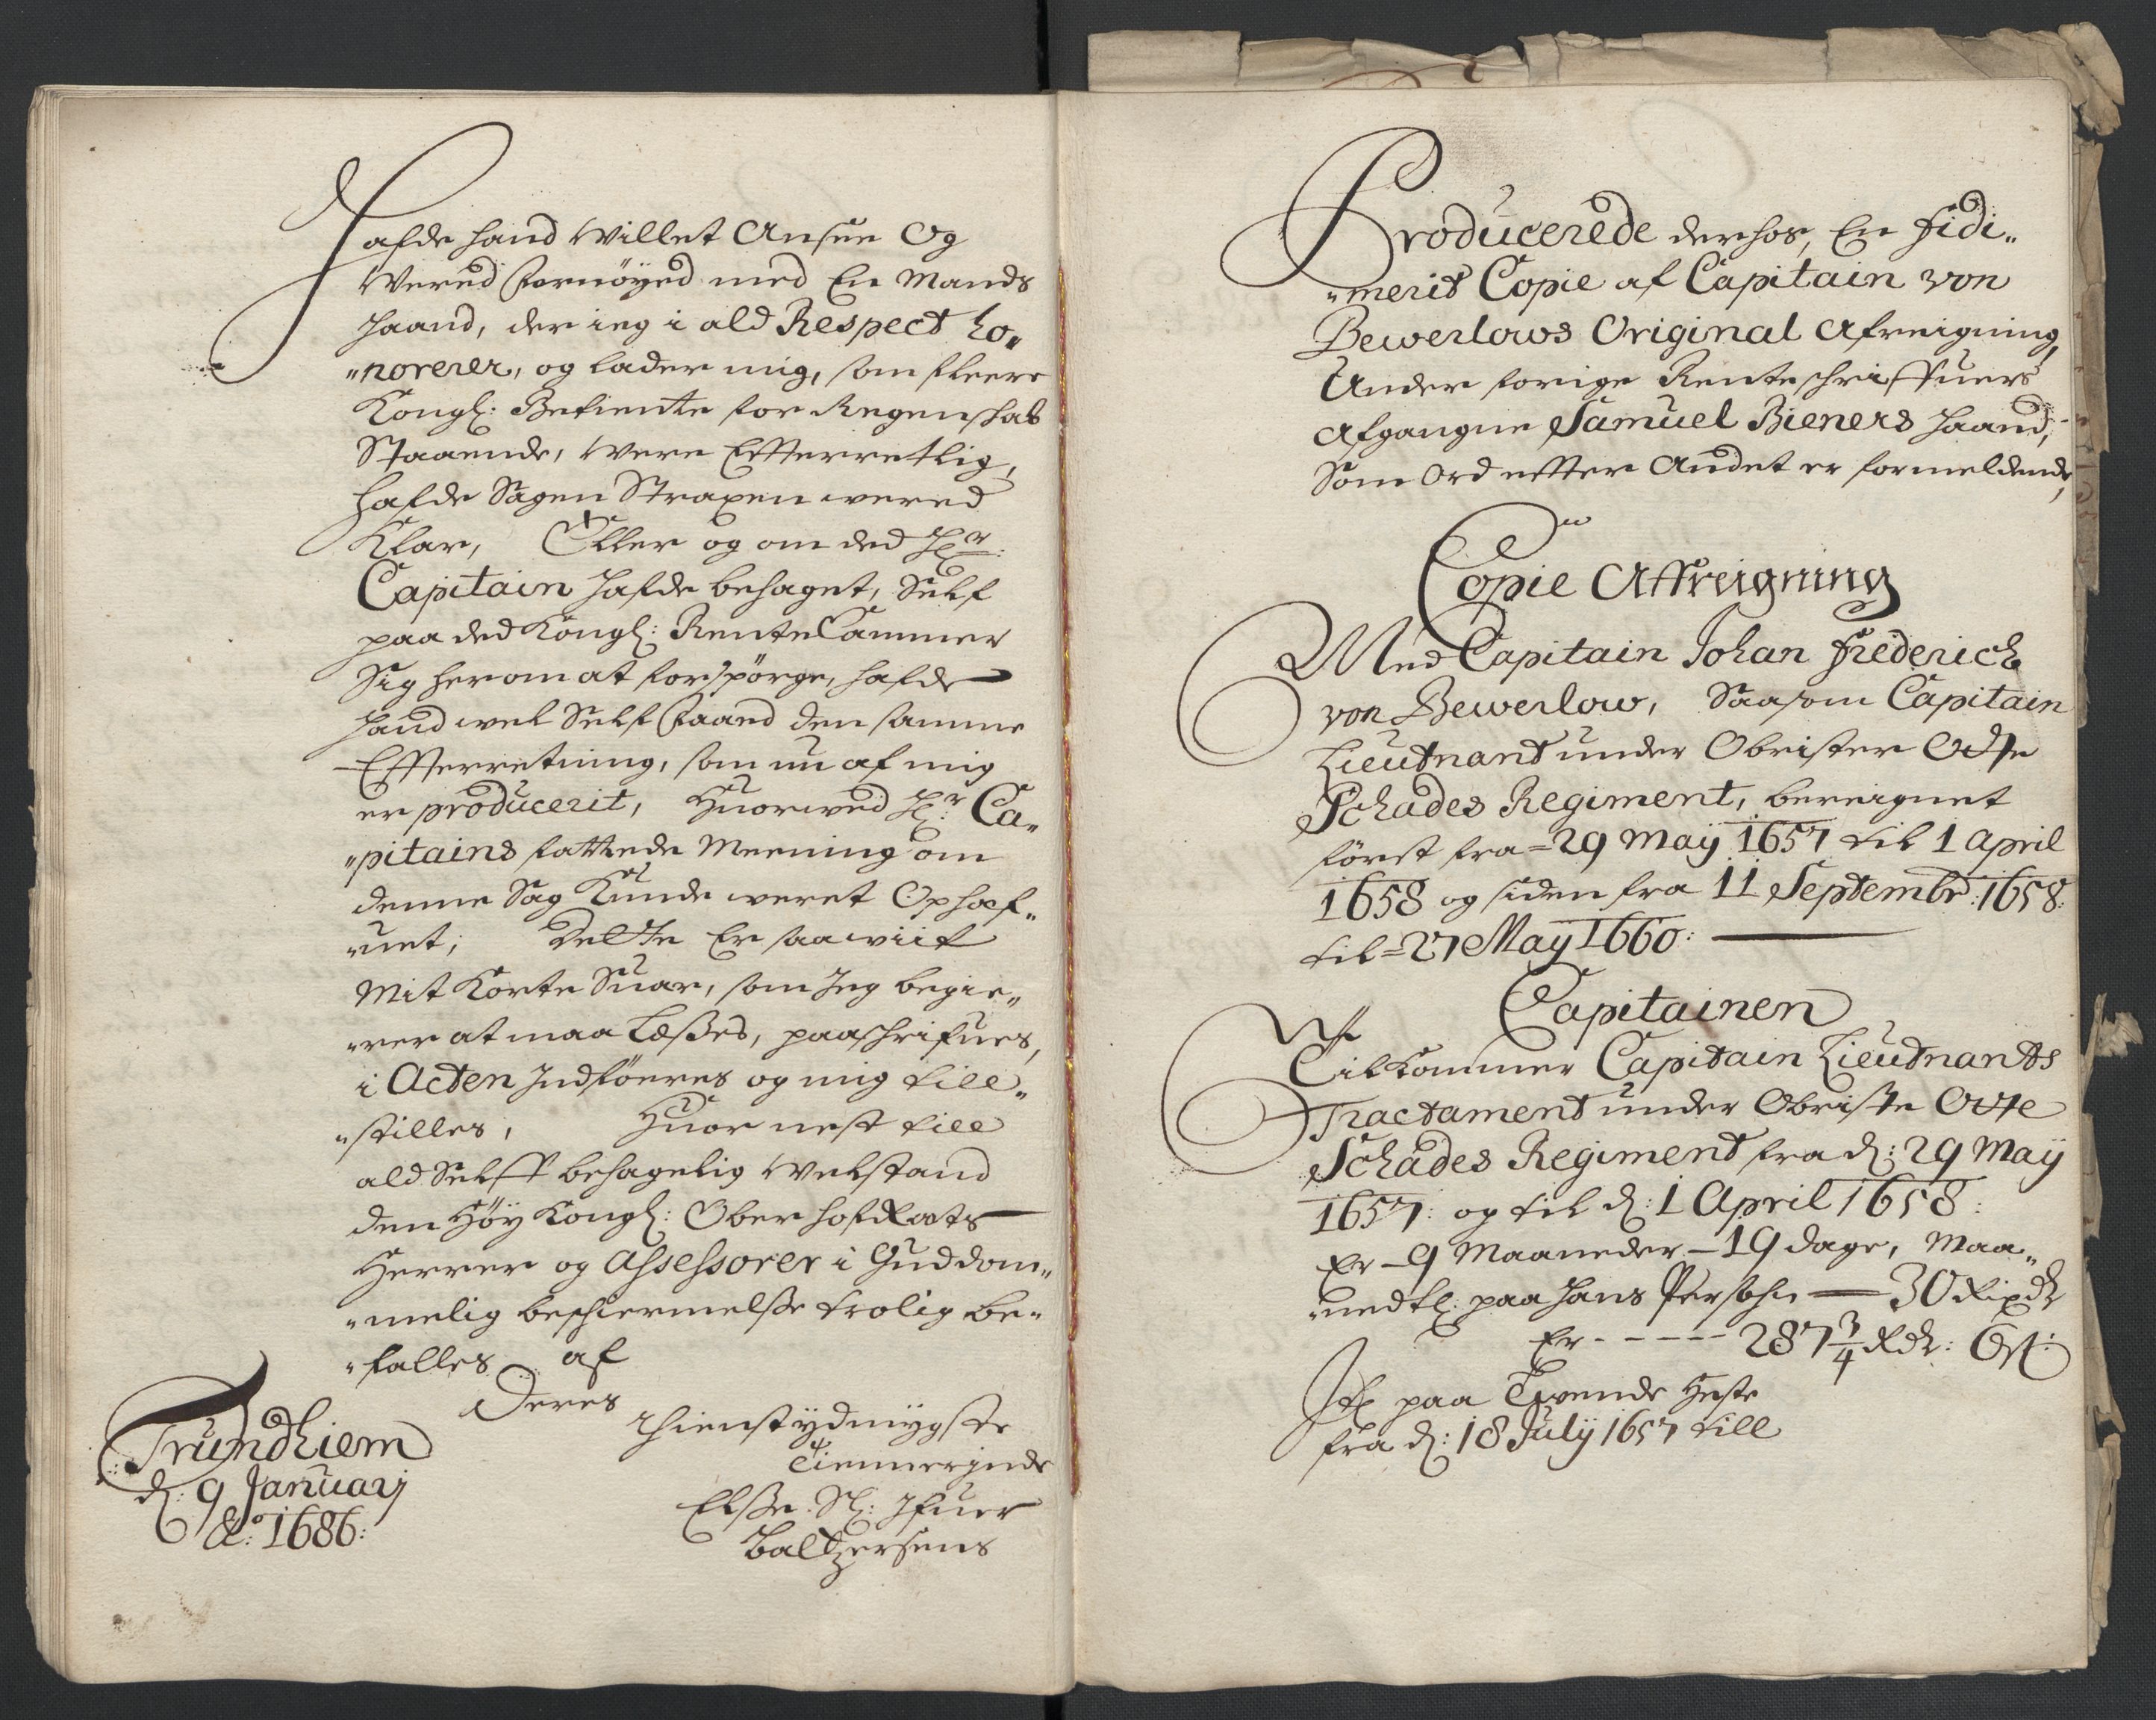 Hafde hand Willet Ansee Og
Wered fornöyed med En Mands
Haand, der ieg i ald Respect ho„
„norerer, og lader mig, som fleere
Kongl: Betiente for Regenskab
Staaende, Were Efterretlig,
hafde Sagen Straxen wered
Klar, Eller og om ded Hr:
Capitain hafde behaget, Self
paa ded Kongl: Rente Cammer
Sig herom at forspörge, hafde
hand wel Self faaed den samme
Efterretning, som nu af mig
er producerit, Huorwed Hr: Ca„
„pitains fattede Meening om
denne Sag Kunde weret Ophæf„
„uet; Dette Er saawiit
Mit Korte Suar, som Jeg begie„
„rer at maa Læßes, paaschrifues,
i Acten Indföeres og mig till„
„stilles, Huor nest till
ald Selff behagelig Welstand
den Höy Kongl: Ober hofRets
Herrer og Assessorer i Guddom„
„melig beschiermelße trolig be„
„falles af
Deres
thienstydmygste
Tiennerinde
Elße Sl: Ifuer
Baltzersens
Trundhiem
d: 9 Januarij
Ao: 1686:
Producerede derhos, En fidi„
„merit Copie af Capitain von
Bewerlows Original Afreigning,
Under forige Renteschriffuers
Afgangne Samuel Bieners Haand,
Som Ord efter Andet er formeldende,
Copie Affreigning
Med Capitain Johan Frederich
von Bewerlow, Saasom Capitain
Lieutnant under Obrister Otte
Schades Regiment, bereignet
först fra = 29 Maij 1657 til 1 April
1658 og siden fra 11 Septembr: 1658:
til = 27 May 1660:
Capitainen
Tilkommer Capitain Lieutnants
Tractament under Obriste Otte
Schades Regiment fra d: 29 Maij
1657: og til d: 1 April 1658:
Er – 9 Maaneder – 19 dage, Maa„
„nedtl: paa hans Persohn — 30 Rixdr
Er - - - - - 287 3/4 Rdr: Ort:
It: paa Tvende Heste
fra d: 18 Julij 1657 till